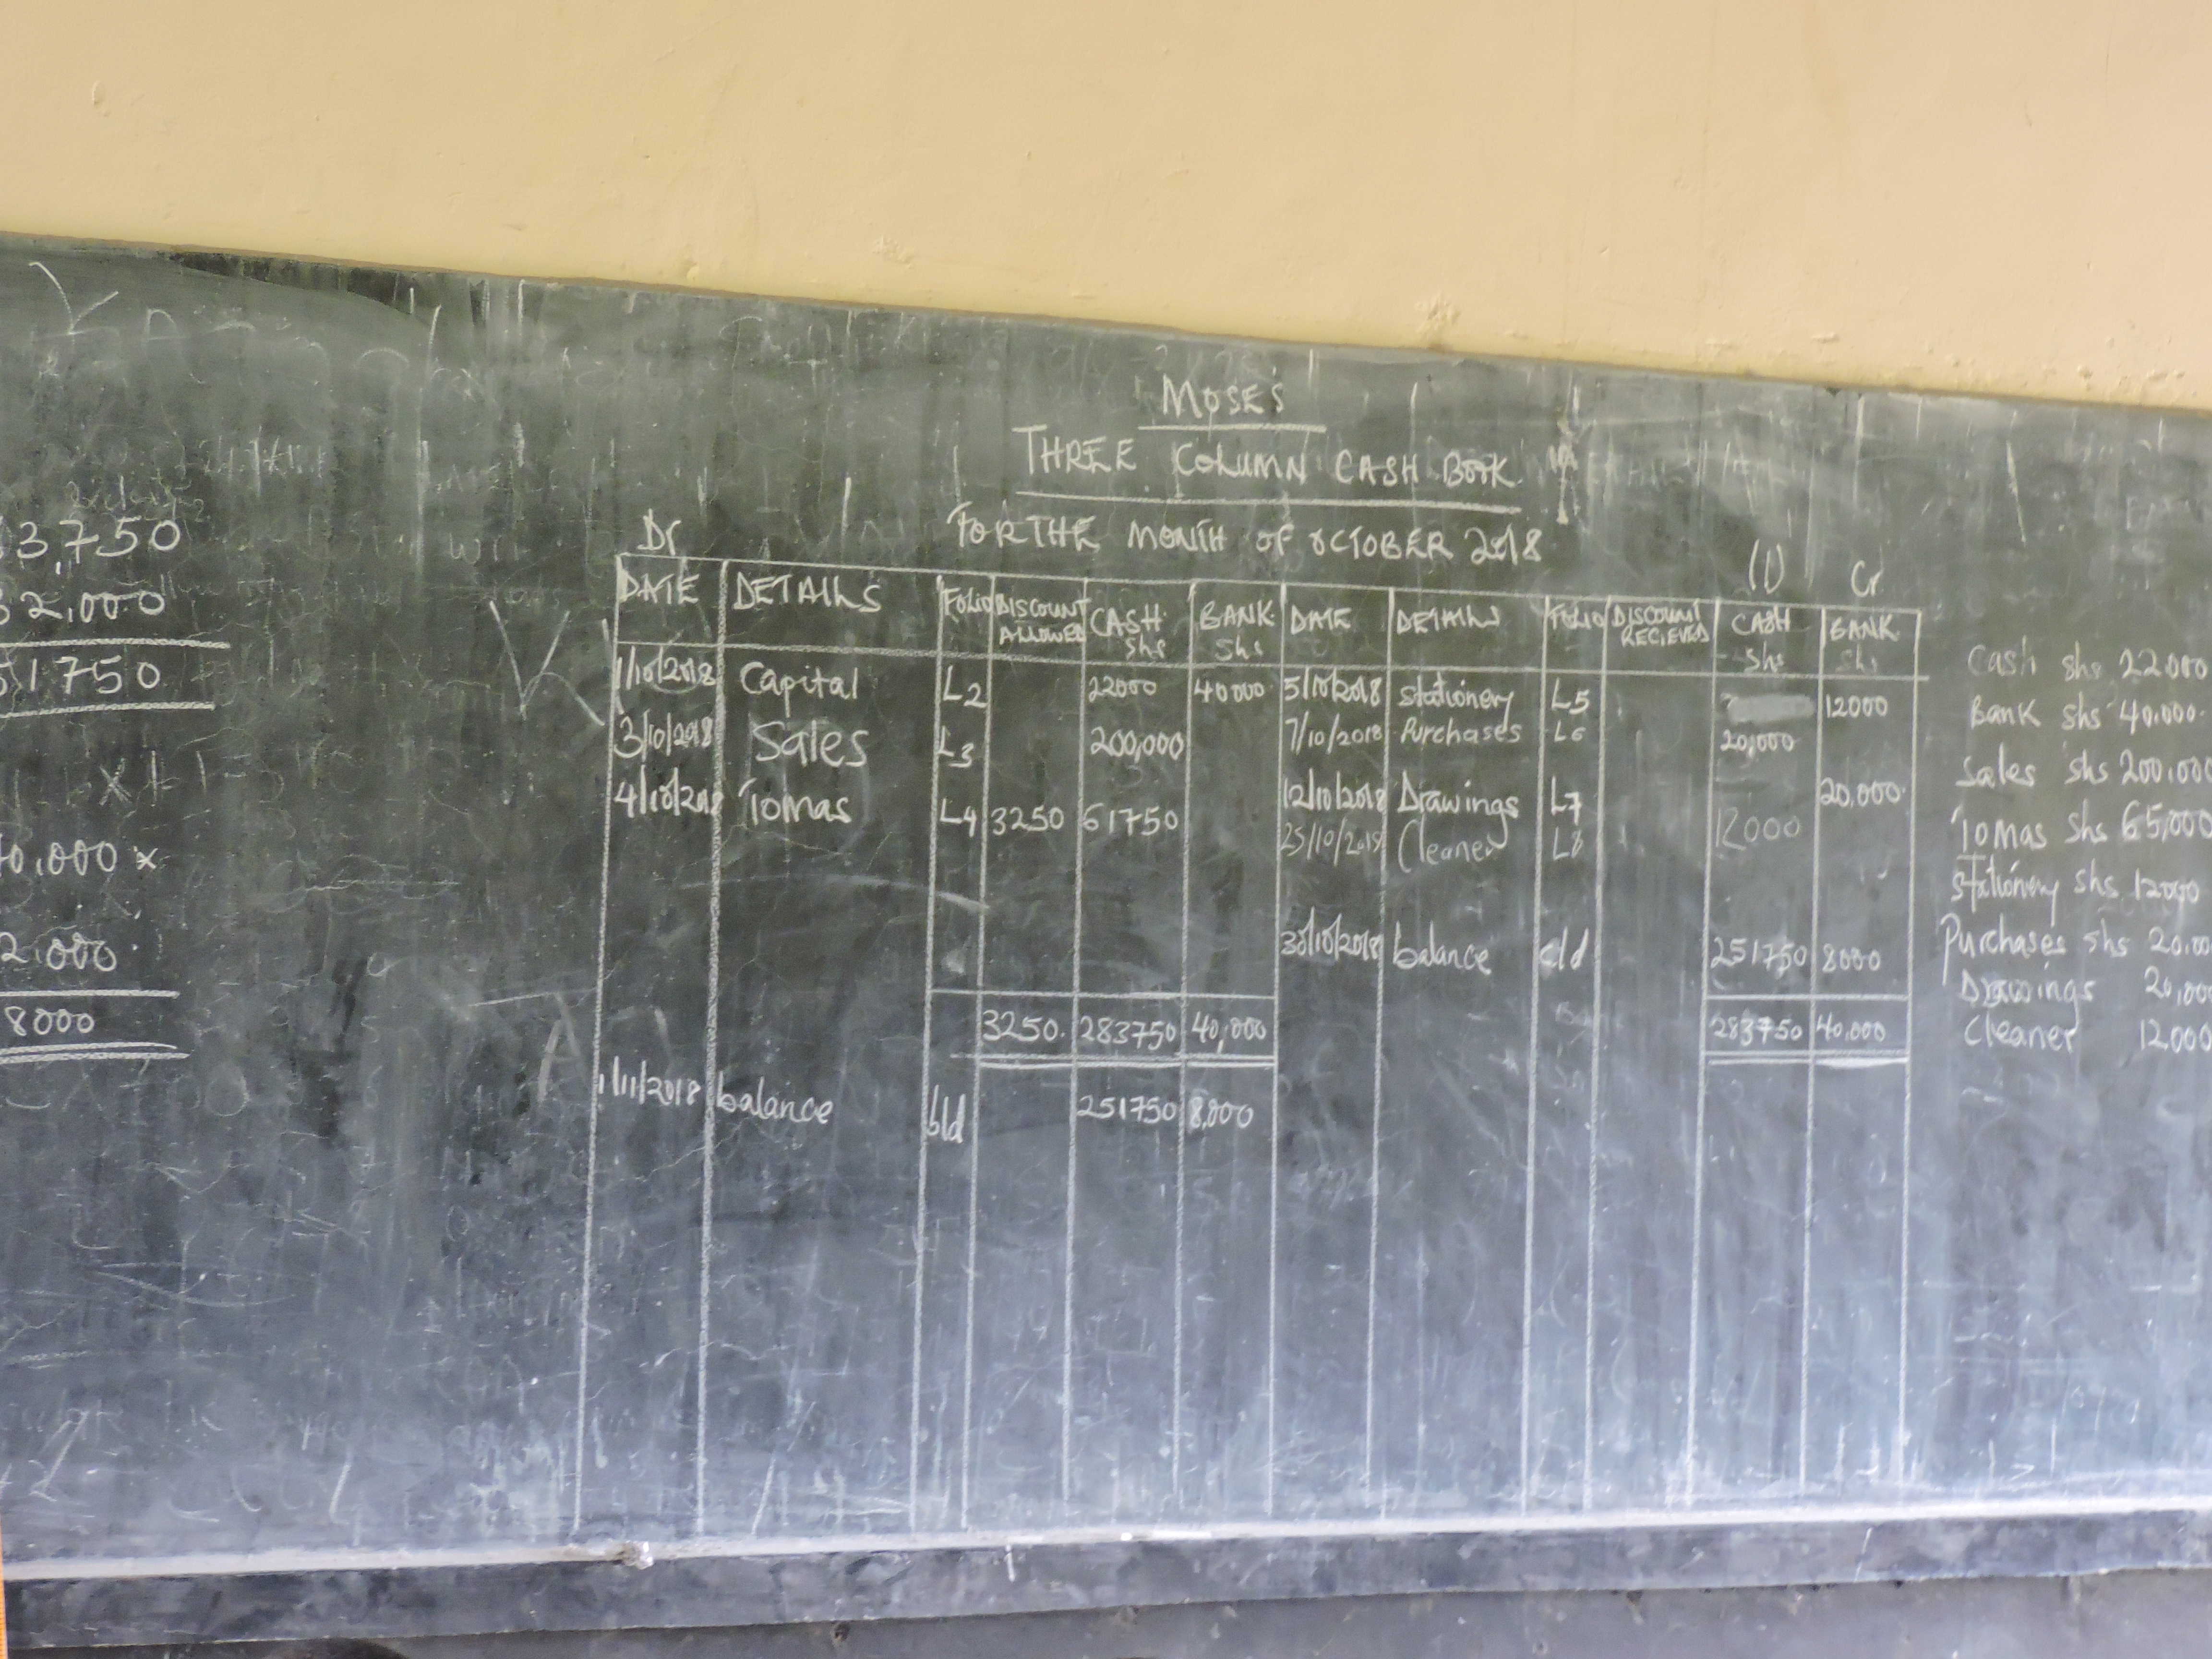 MOSES
THREE COLUMN CASH BOOK
FOR THE MONTH OF OCTOBER 2018
Dr (1) Cr
DATE DETAILS FOLIO DISCOUNT ALLOWED CASH shs BANK shs DATE DETAILS FOLIO DISCOUNT RECIEVED CASH shs BANK shs
1/10/2018 Capital L2 22000 40000 5/10/2018 Stationery L5 12000
3/10/2018 Sales L3 200,000 7/10/2018 Purchases L6 20,000
4/10/2018 Tomas L4 3250 61750 12/10/2018 Drawings L7 20,000
25/10/2018 Cleaner L8 12000
30/10/2018 balance c/d 251750 8000
3250 283750 40,000 283750 40,000
1/11/2018 balance b/d 251750 8,000
3,750
2,000
1750
0,000 x
2,000
8000
Cash shs 22,000
Bank shs 40,000
Sales shs 200,000
Tomas shs 65,000
Stationery shs 12000
Purchases shs 20,00
Drawings 20,000
Cleaner 12,000